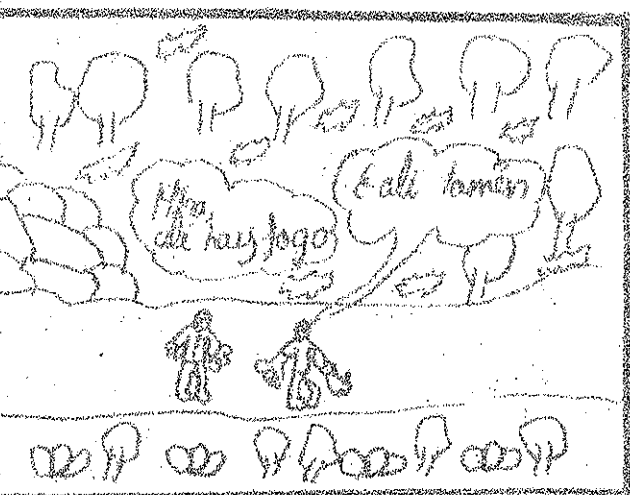 Mira,
alí hai fogo
E alí tamén